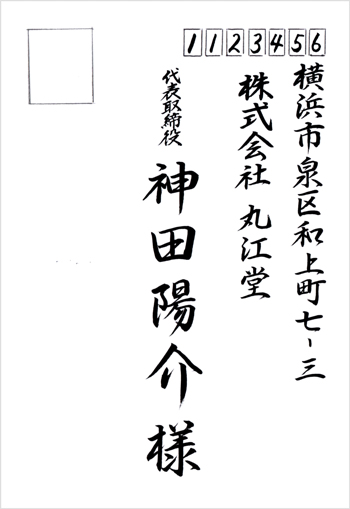 1123456
横浜市泉区和上町七-三
株式会社 丸江堂
代表取締役
神田陽介様